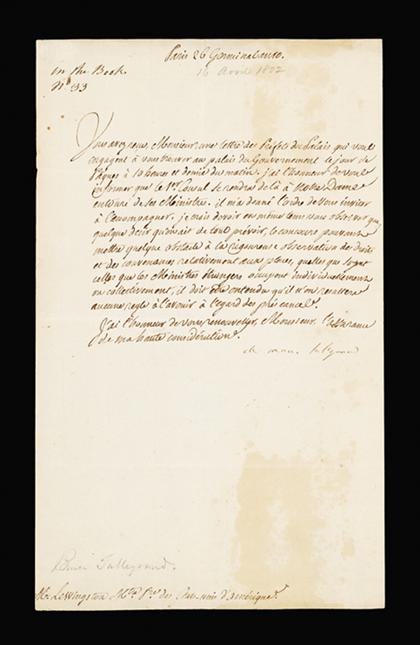 Paris 26 Germinal an 10.
16 Avril 1802
In the Book
Nº 33
Vous avez reçu, Monsieur, une lettre des Préfets du Palais qui vous
engagent à vous trouver au palais du Gouvernement le jour de
Pâques à 10 heures et demie du matin. j'ai l'honneur de vous
informer que le 1er Consul se rendra de là à Notre Dame
entouré de ses Ministres. il m'a donné l'ordre de vous inviter
à l'accompagner, je crois devoir en même tems vous observer que
quelque désir qu'on ait de tout prévoir, le concours pouvant
mettre quelque obstacle à la rigoureuse observation des droits
et des convenances relativement aux places, quelles que soyent
celles que les Ministres étrangers occupent individuellement
ou collectivement, il doit être entendu qu'il n'en resultera
aucune regle à l'avenir à l'égard des préséances.
J'ai l'honneur de vous renouveller, Monsieur, l'assurance
de ma haute considération.
ch. mau. talleyrand
Prince Talleyrand.
Mr. Lewingston Mtre. Pre. des Etats unis d'amérique.